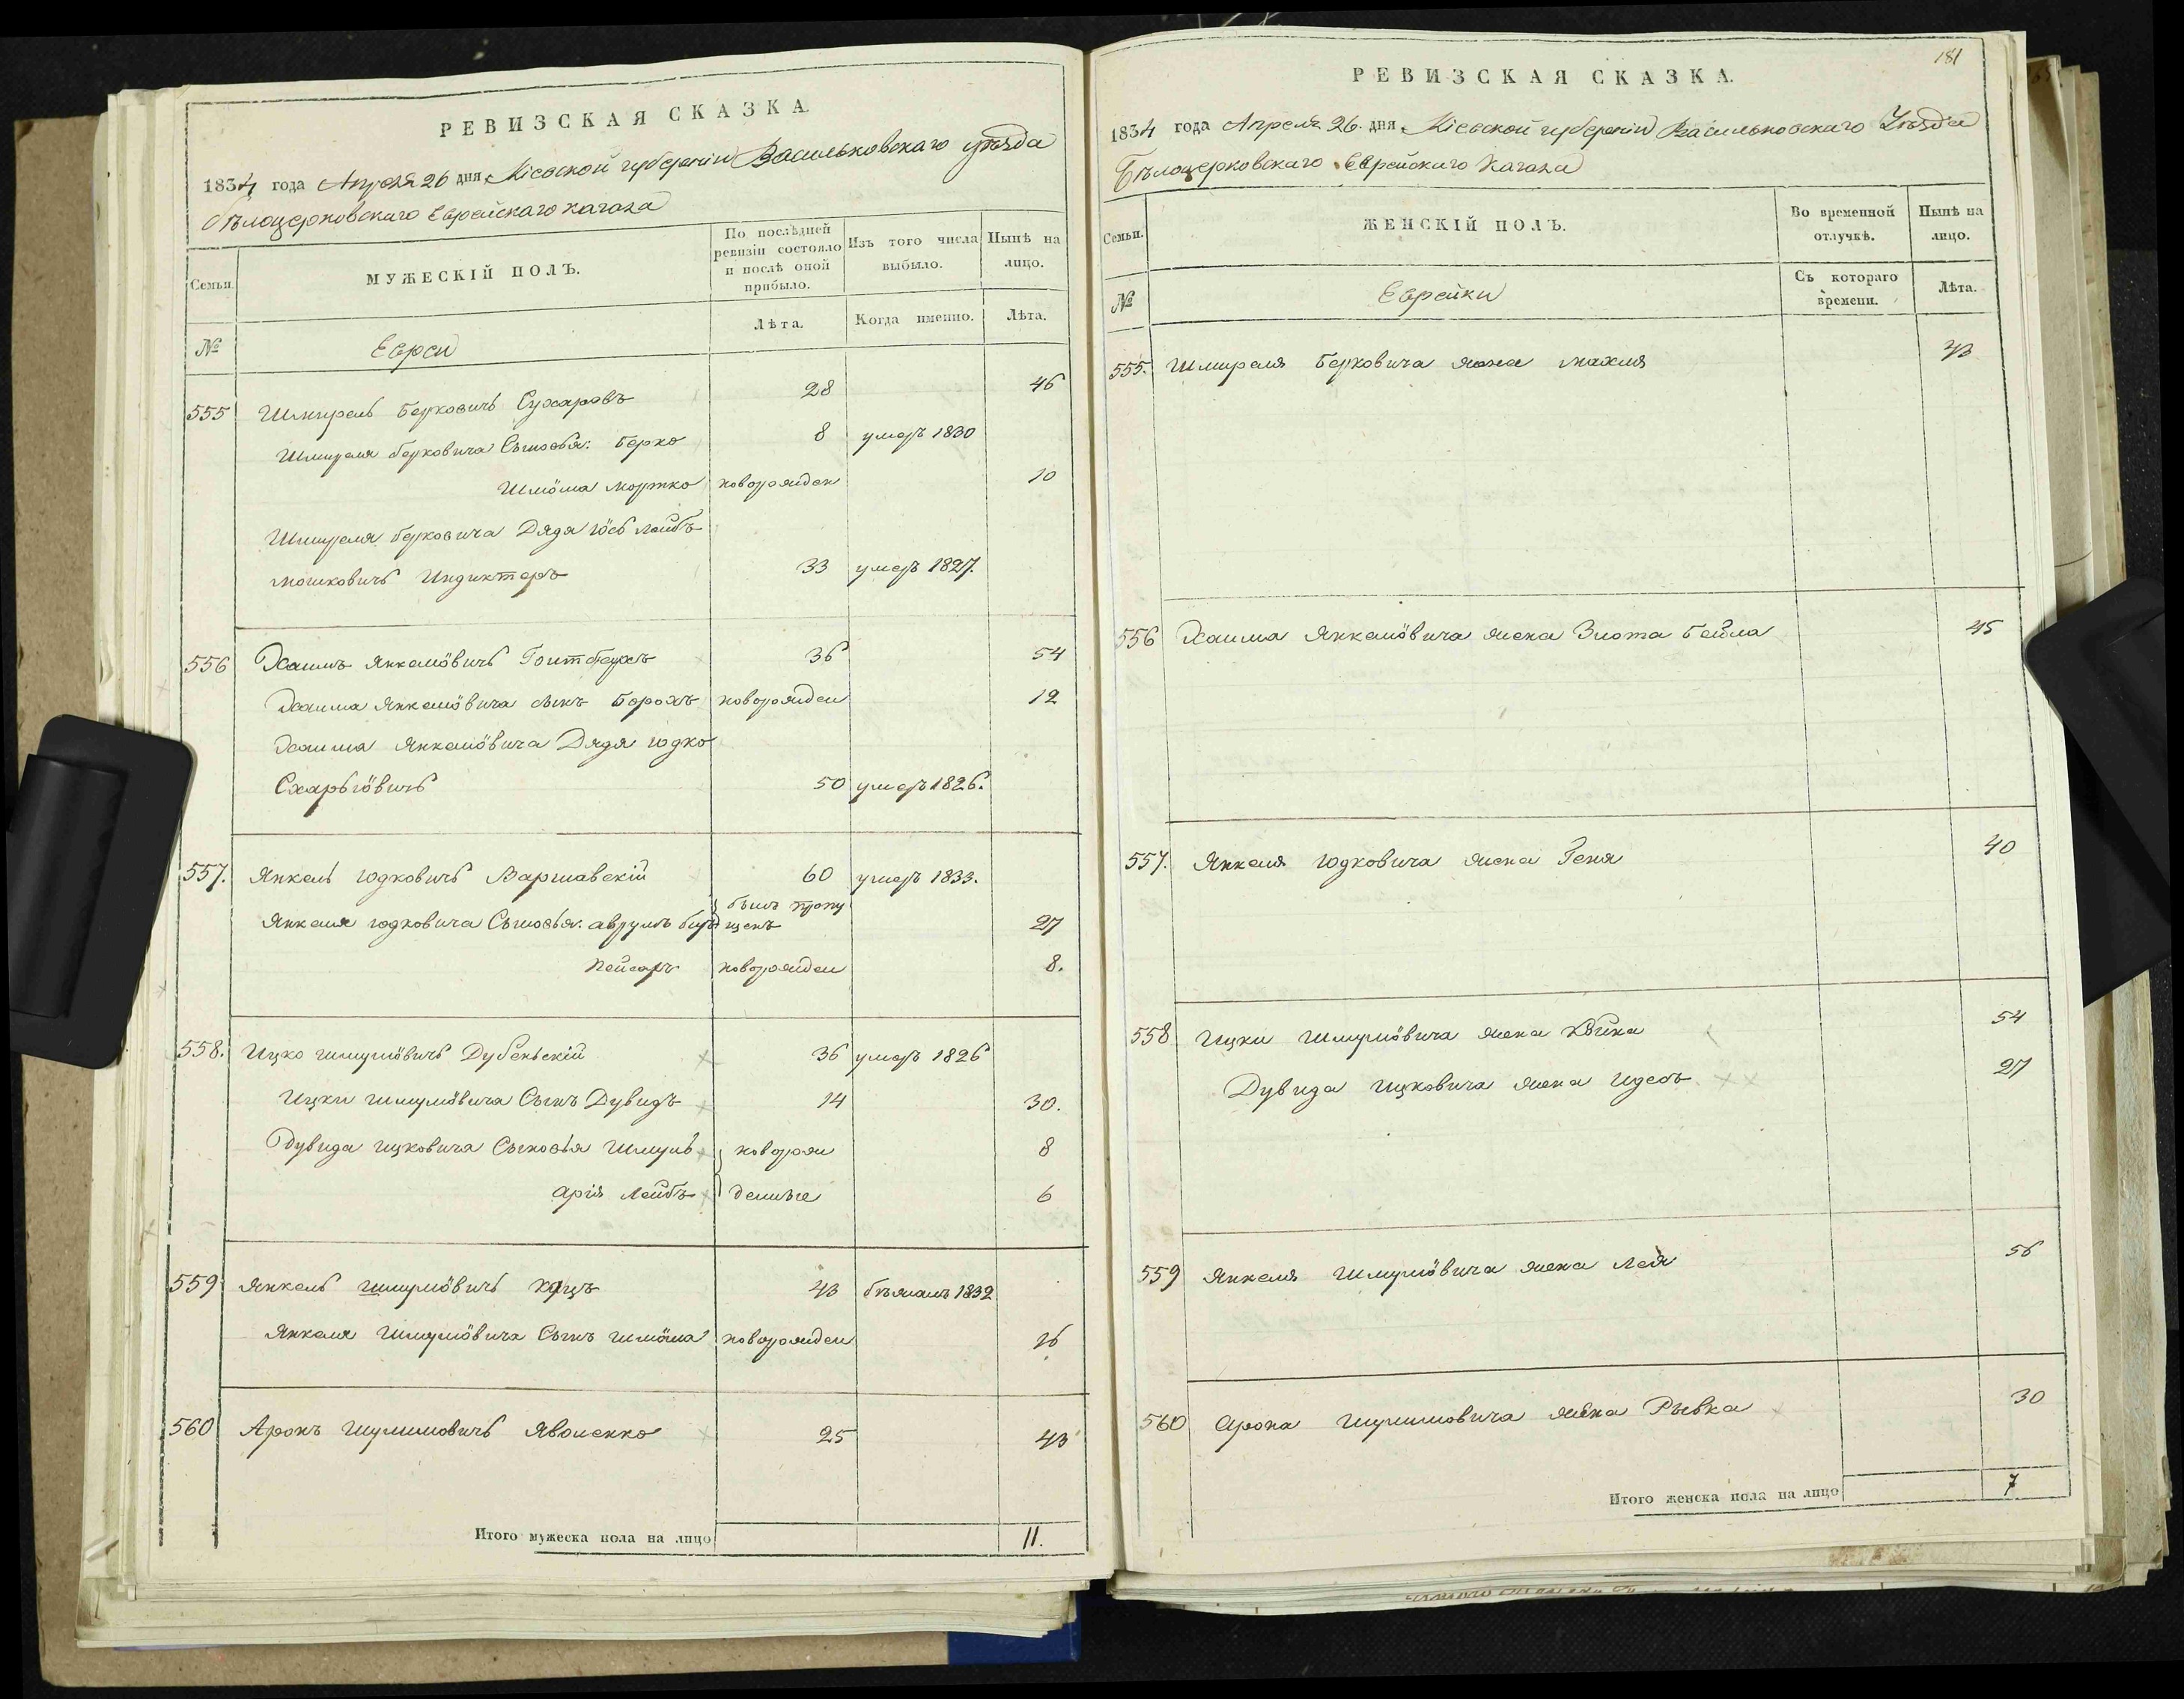 РЕВИЗСКАЯ СКАЗКА
1834 года Апреля 26 дня Кіевской губерніи Васильковскаго уѣзда
бѣлоцерковскаго Еврейскаго кагала
Семьи. МУЖЕСКІЙ ПОЛЪ. По послѣдней ревизіи состояло и послѣ оной прибыло. Изъ того числа выбыло. Нынѣ на лицо.
№ Евреи Лѣта. Когда именно. Лѣта.
555 Шмирель берковичь Сухаровъ 28 46
Шмиреля берковича Сыновья: берко 8 умеръ 1830
Шлёма мортко новорожден 10
Шмиреля берковича Дядя Іось лейбъ
мошковичь Индиктеръ 33 умеръ 1827.
556 Хаимъ Янкелёвичь 36 54
Хаима Янкелёвича сынъ борохъ новорожден 12
Хаима Янкелёвича Дядя юдко
50 умеръ 1826.
557. Янкель юдковичь Варшавскій 60 умеръ 1833.
Янкеля юдковича Сыновья: аврумъ беръ былъ пропущенъ 27
Пейсаръ новорожден 8.
558. Ицко шмулёвичь Дубенскій 36 умеръ 1826
Ицки шмулёвича Сынъ Дувидъ 14 30.
Дувида ицковича Сыновья Шмуль новорож 8
арія лейбъ денные 6
559 Янкель шмулёвичь Куцъ 43 бѣжалъ 1832
Янкеля Шмулёвича Сынъ шлёма новорожден 16
560 Аронъ шулимовичь Яволенко 25 43
Итого мужеска пола на лицо 11.
181
РЕВИЗСКАЯ СКАЗКА.
1834 года Апреля 26. дня Кіевской губерніи Васильковскаго Уѣзда
Бѣлоцерковскаго Еврейскаго Кагала
Семьи. ЖЕНСКІЙ ПОЛЪ. Во временной отлучкѣ. Нынѣ на лицо.
№ Еврейки Съ котораго времени. Лѣта.
555. Шмиреля берковича жена махля 43
556 Хаима Янкелёвича жена Злота бейла 45
557. Янкеля юдковича жена Геня 40
558 Ицки шмулёвича жена 54
Дувида ицковича жена идесъ 27
559 Янкеля Шмулёвича жена лея 56
560 арона шулимовича жена Рывка 30
Итого женска пола на лицо 7